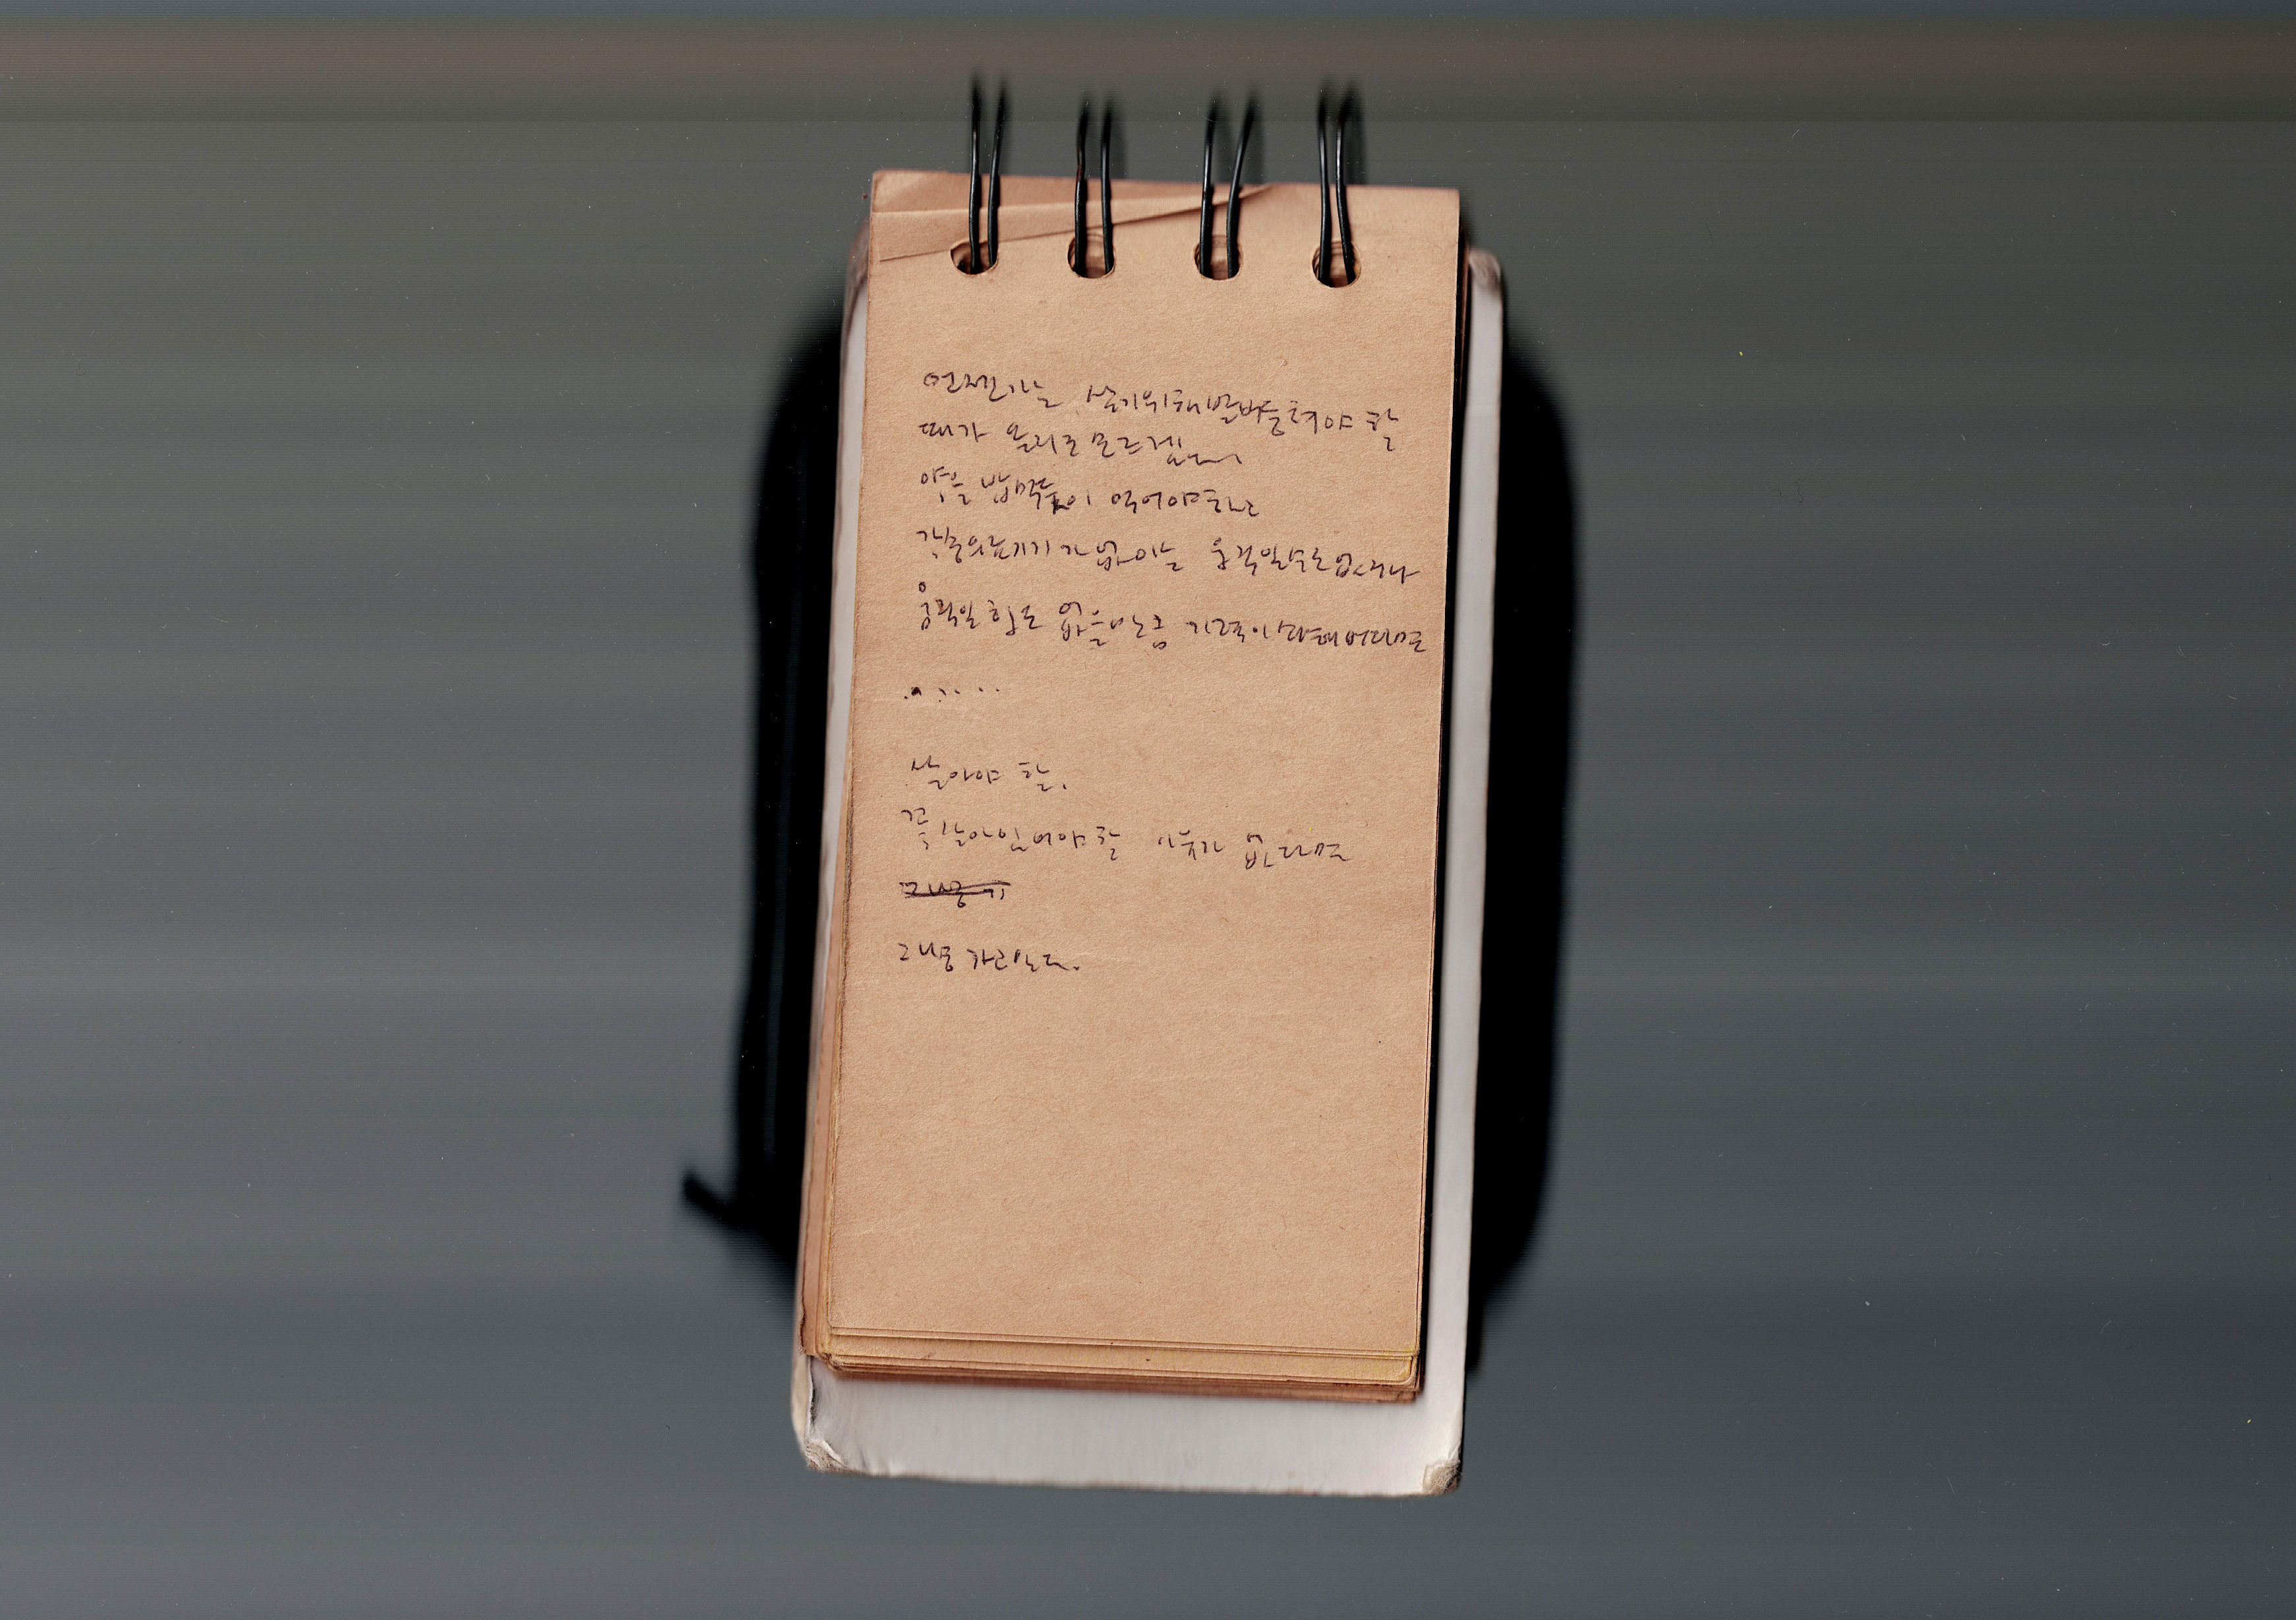 언젠가는 살기위해 발버둥쳐야 할
때가 올지도 모르겠다.
약을 밥먹듯이 먹어야하고
각종의료기기가 없이는 움직일수도없거나
움직일 힘도 없을만큼 기력이쇠해버리면
......
살아야 할.
꼭 살아있어야할 이유가 없다면
그냥 가
그냥 가련다.